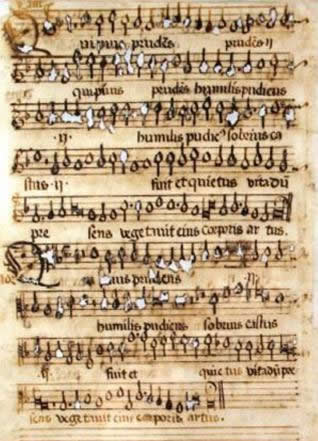 Qui pius prudēs prudēs ij
qui pius prudēs humilis pudicus
.ij. humilis pudic⁹ sobrius ca
stus .ij. fuit et quietus vita dū
pre sens vegetavit eius corporis ar tus.
Qui pius prudens
humilis pudicus sobrius castus
.ij. fuit et quie tus vita dū pre
sens vegetavit eius corporis artus.